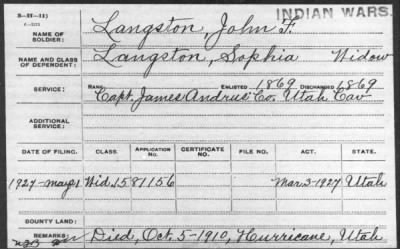 3—II—11)
INDIAN WARS.
NAME OF SOLDIER: Langston, John F.
NAME AND CLASS OF DEPENDENT: Langston, Sophia Widow
SERVICE: RANK, ENLISTED 1869 DISCHARGED 1869
Capt. James Andrus' Co. Utah Cav
ADDITIONAL SERVICE:
DATE OF FILING. CLASS. APPLICATION NO. CERTIFICATE NO. FILE NO. ACT. STATE.
1927-may 21 Wid. 1581156 Mar. 3-1927 Utah
COUNTY LAND:
REMARKS: Died, Oct. 5-1910, Hurricane, Utah